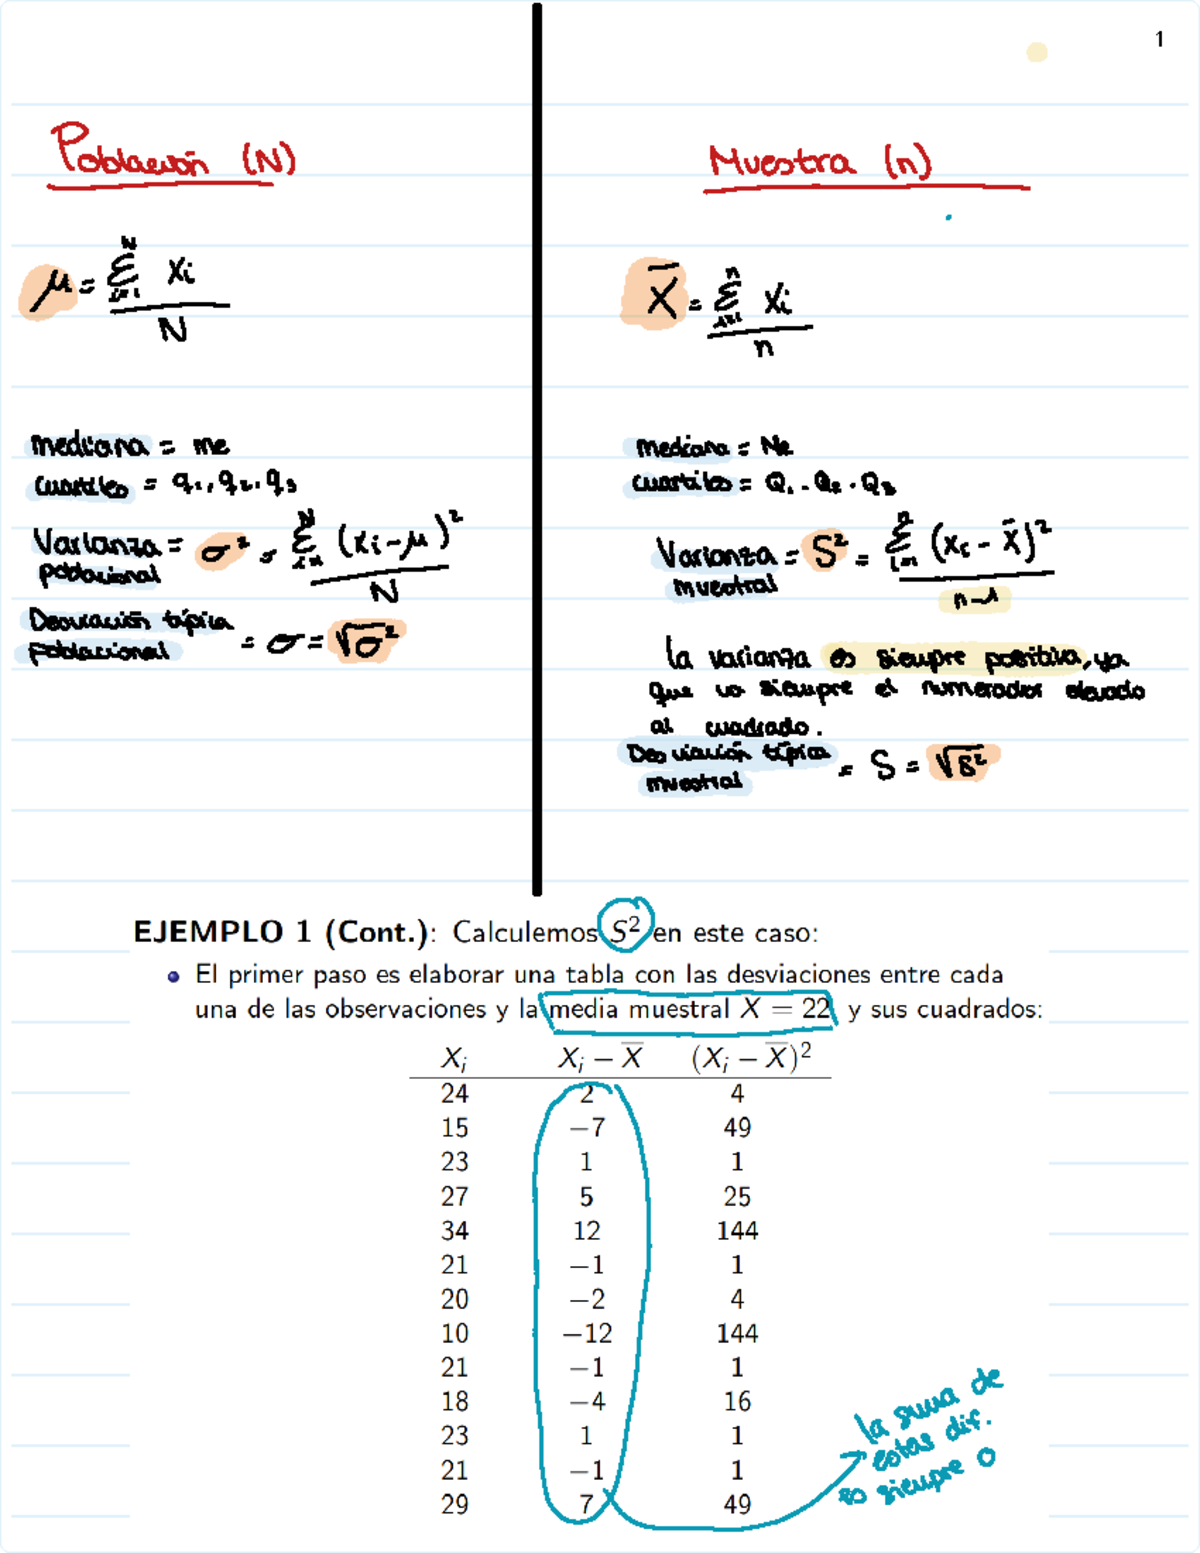 1
Población (N)
μ = Σ i=1 N Xi / N
mediana = me
cuartiles = q1, q2, q3
Varianza poblacional = σ² = Σ i=1 N (xi - μ)² / N
Desviación típica poblacional = σ = √σ²
Muestra (n)
X̄ = Σ i=1 n Xi / n
mediana = Me
cuartiles = Q1, Q2, Q3
Varianza muestral = S² = Σ i=1 n (xi - X̄)² / n-1
La varianza es siempre positiva, ya
que va siempre el numerador elevado
al cuadrado.
Desviación típica muestral = S = √S²
EJEMPLO 1 (Cont.): Calculemos S² en este caso:
• El primer paso es elaborar una tabla con las desviaciones entre cada
una de las observaciones y la media muestral X = 22 y sus cuadrados:
Xi Xi − X̄ (Xi − X̄)²
24 2 4
15 −7 49
23 1 1
27 5 25
34 12 144
21 −1 1
20 −2 4
10 −12 144
21 −1 1
18 −4 16
23 1 1
21 −1 1
29 7 49
la suma de
estas dif.
es siempre 0